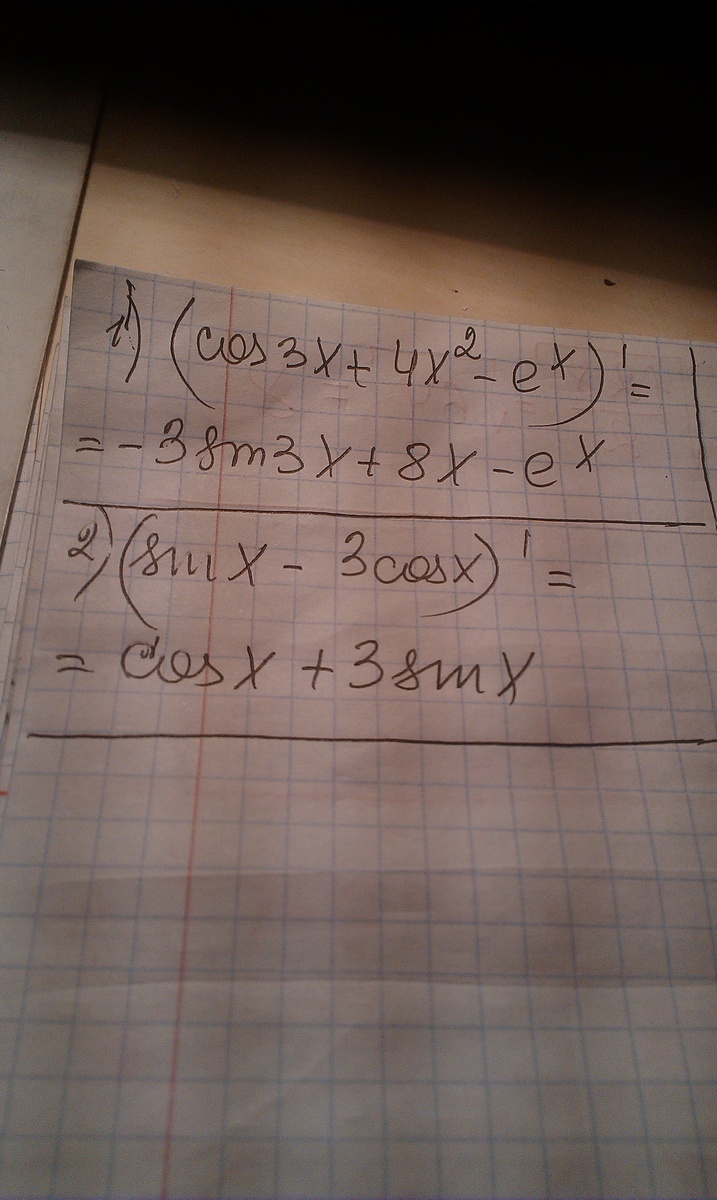 1) (cos3x + 4x² - eˣ)' =
= -3sin3x + 8x - eˣ
2) (sinx - 3cosx)' =
= cosx + 3sinx